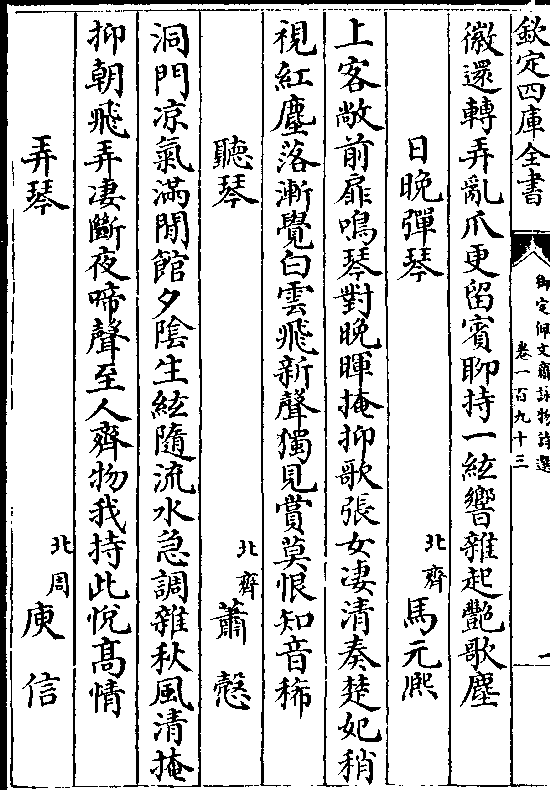 欽定四庫全書
御定佩文齋詠物詩選
卷一百九十三
一
徽還轉弄亂爪更留賓聊持一絃響雜起艶歌塵
日晩彈琴
北齊馬元熈
上客敞前扉鳴琴對晩暉掩抑歌張女凄清奏楚妃稍
視紅塵落漸覺白雲飛新聲獨見賞莫恨知音稀
聽琴
北齊蕭慤
洞門凉氣滿閒館夕陰生絃隨流水急調雜秋風清掩
抑朝飛弄凄斷夜啼聲至人齊物我持此悅高情
弄琴
北周庾信